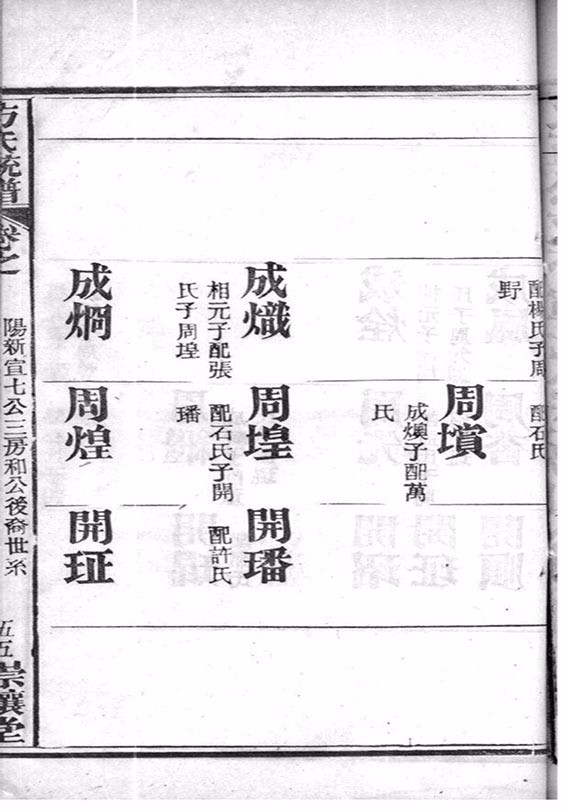 配楊氏子周
野
成熾
相元子配張
氏子周埕
成烱
配石氏
周墳
成燠子配萬
氏
周埕
配石氏子開
璠
周煌
開璠
配許氏
開珏
方氏統譜
卷之一
陽新宣七公三房和公後裔世系
五五
崇讓堂